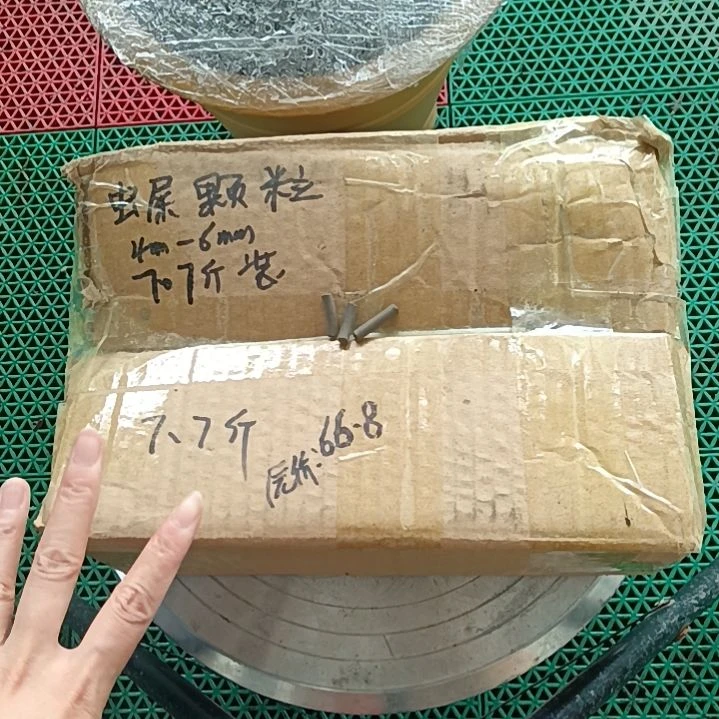 虫屎颗粒
4mm-6mm
7.7斤装
7.7斤
原价:66.8